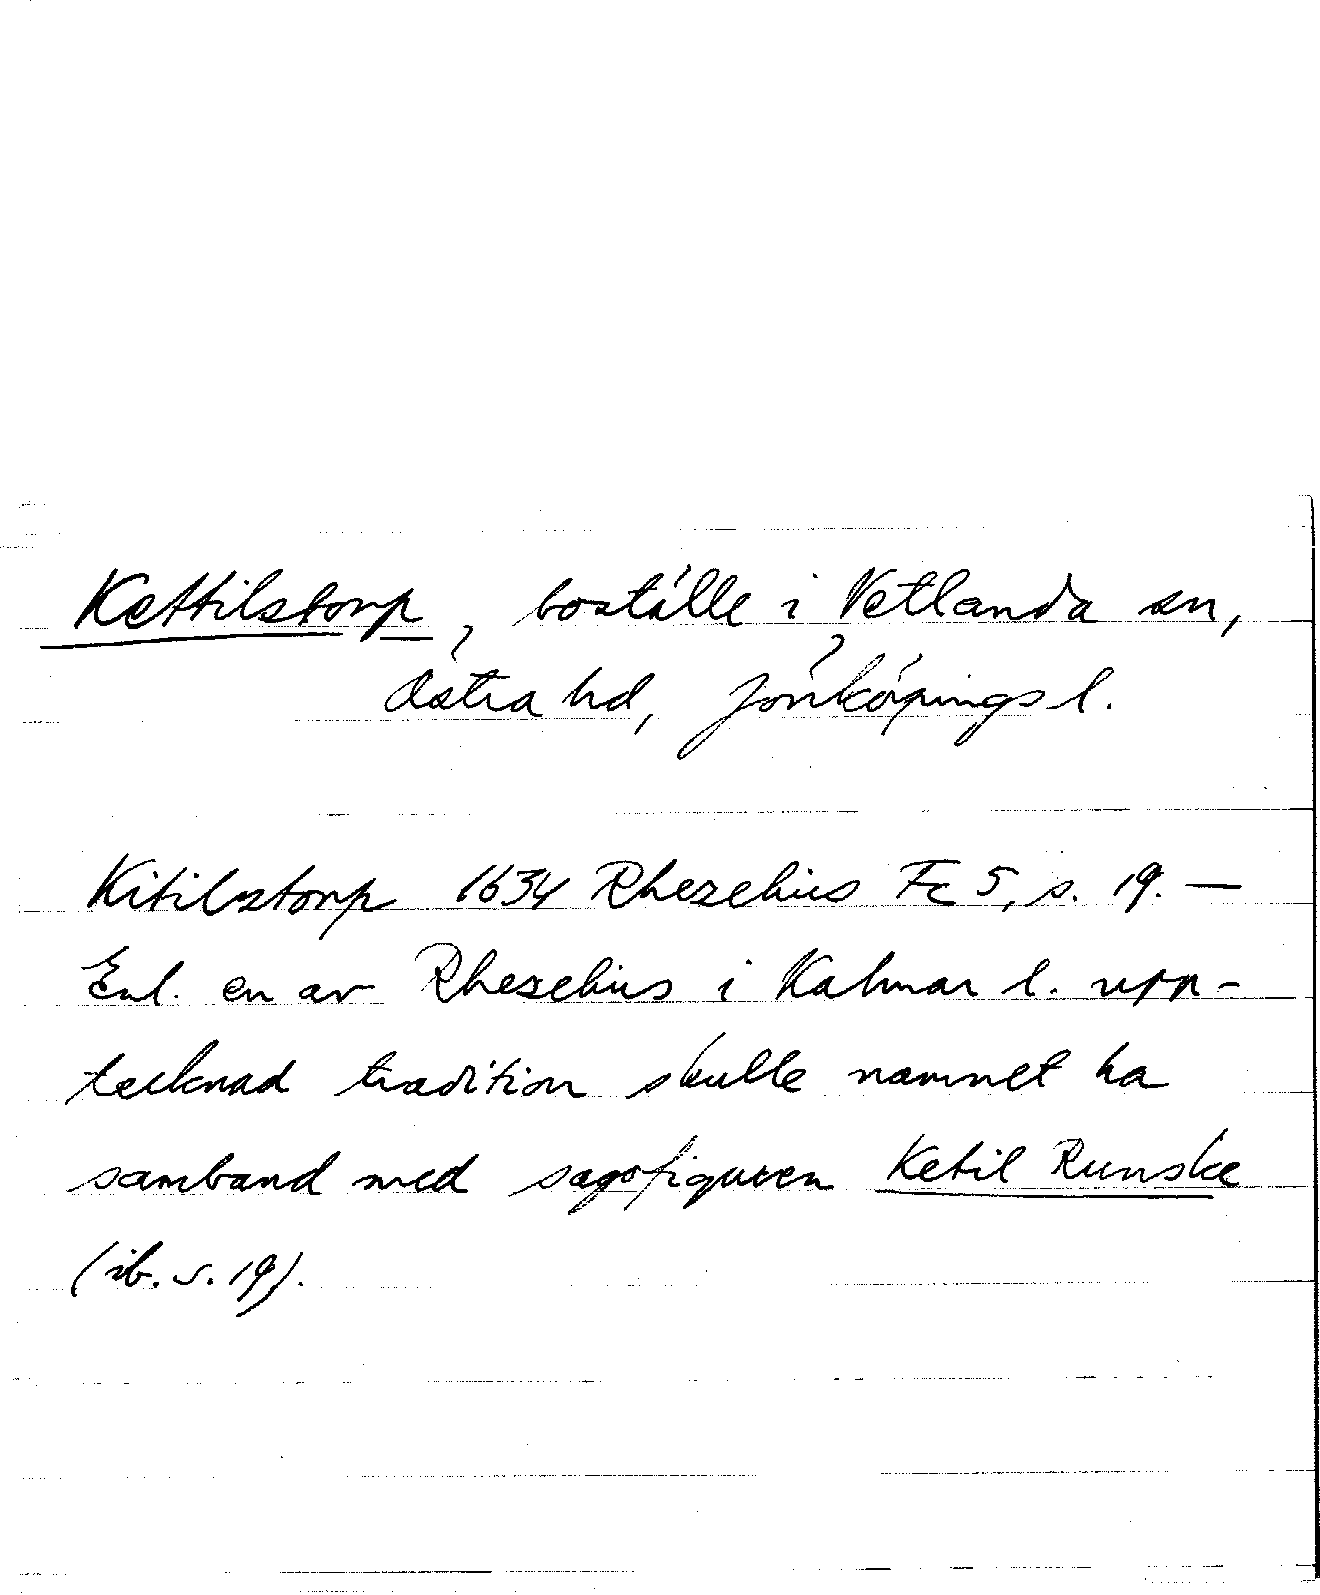 Kettilstorp, boställe i Vetlanda sn,
Östra hd, Jönköpings l.
Kitilstorp 1634 Rhezelius Fc 5, s. 19. —
Enl. en av Rhezelius i Kalmar l. upp-
tecknad tradition skulle namnet ha
samband med sagofiguren Ketil Runske
(ib. s. 19).